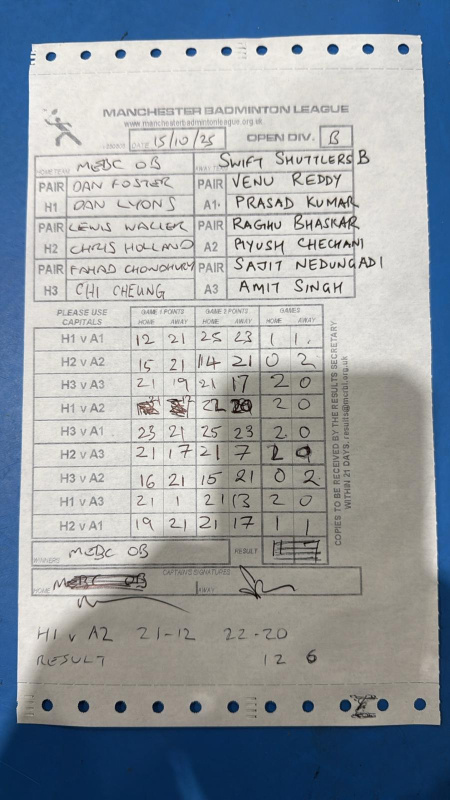 MANCHESTER BADMINTON LEAGUE
www.manchesterbadmintonleague.org.uk
DATE 15/10/25 OPEN DIV. B
HOME TEAM MEBC OB AWAY TEAM SWIFT SHUTTLERS B
PAIR DAN FOSTER PAIR VENU REDDY
H1 DAN LYONS A1 PRASAD KUMAR
PAIR LEWIS WALLER PAIR RAGHU BHASKAR
H2 CHRIS HOLLAND A2 PIYUSH CHECHANI
PAIR FAHAD CHOWDHURY PAIR SAJIT NEDUNGADI
H3 CHI CHEUNG A3 AMIT SINGH
PLEASE USE CAPITALS GAME 1 POINTS GAME 2 POINTS GAMES
HOME AWAY HOME AWAY HOME AWAY
H1 v A1 12 21 25 23 1 1
H2 v A2 15 21 14 21 0 2
H3 v A3 21 19 21 17 2 0
H1 v A2 22 2 0
H3 v A1 23 21 25 23 2 0
H2 v A3 21 17 21 7 2 0
H3 v A2 16 21 15 21 0 2
H1 v A3 21 1 21 13 2 0
H2 v A1 19 21 21 17 1 1
WINNERS MEBC OB RESULT
CAPTAIN'S SIGNATURES
HOME MEBC OB AWAY
H1 v A2 21-12 22-20
RESULT 12 6
COPIES TO BE RECEIVED BY THE RESULTS SECRETARY
WITHIN 21 DAYS.